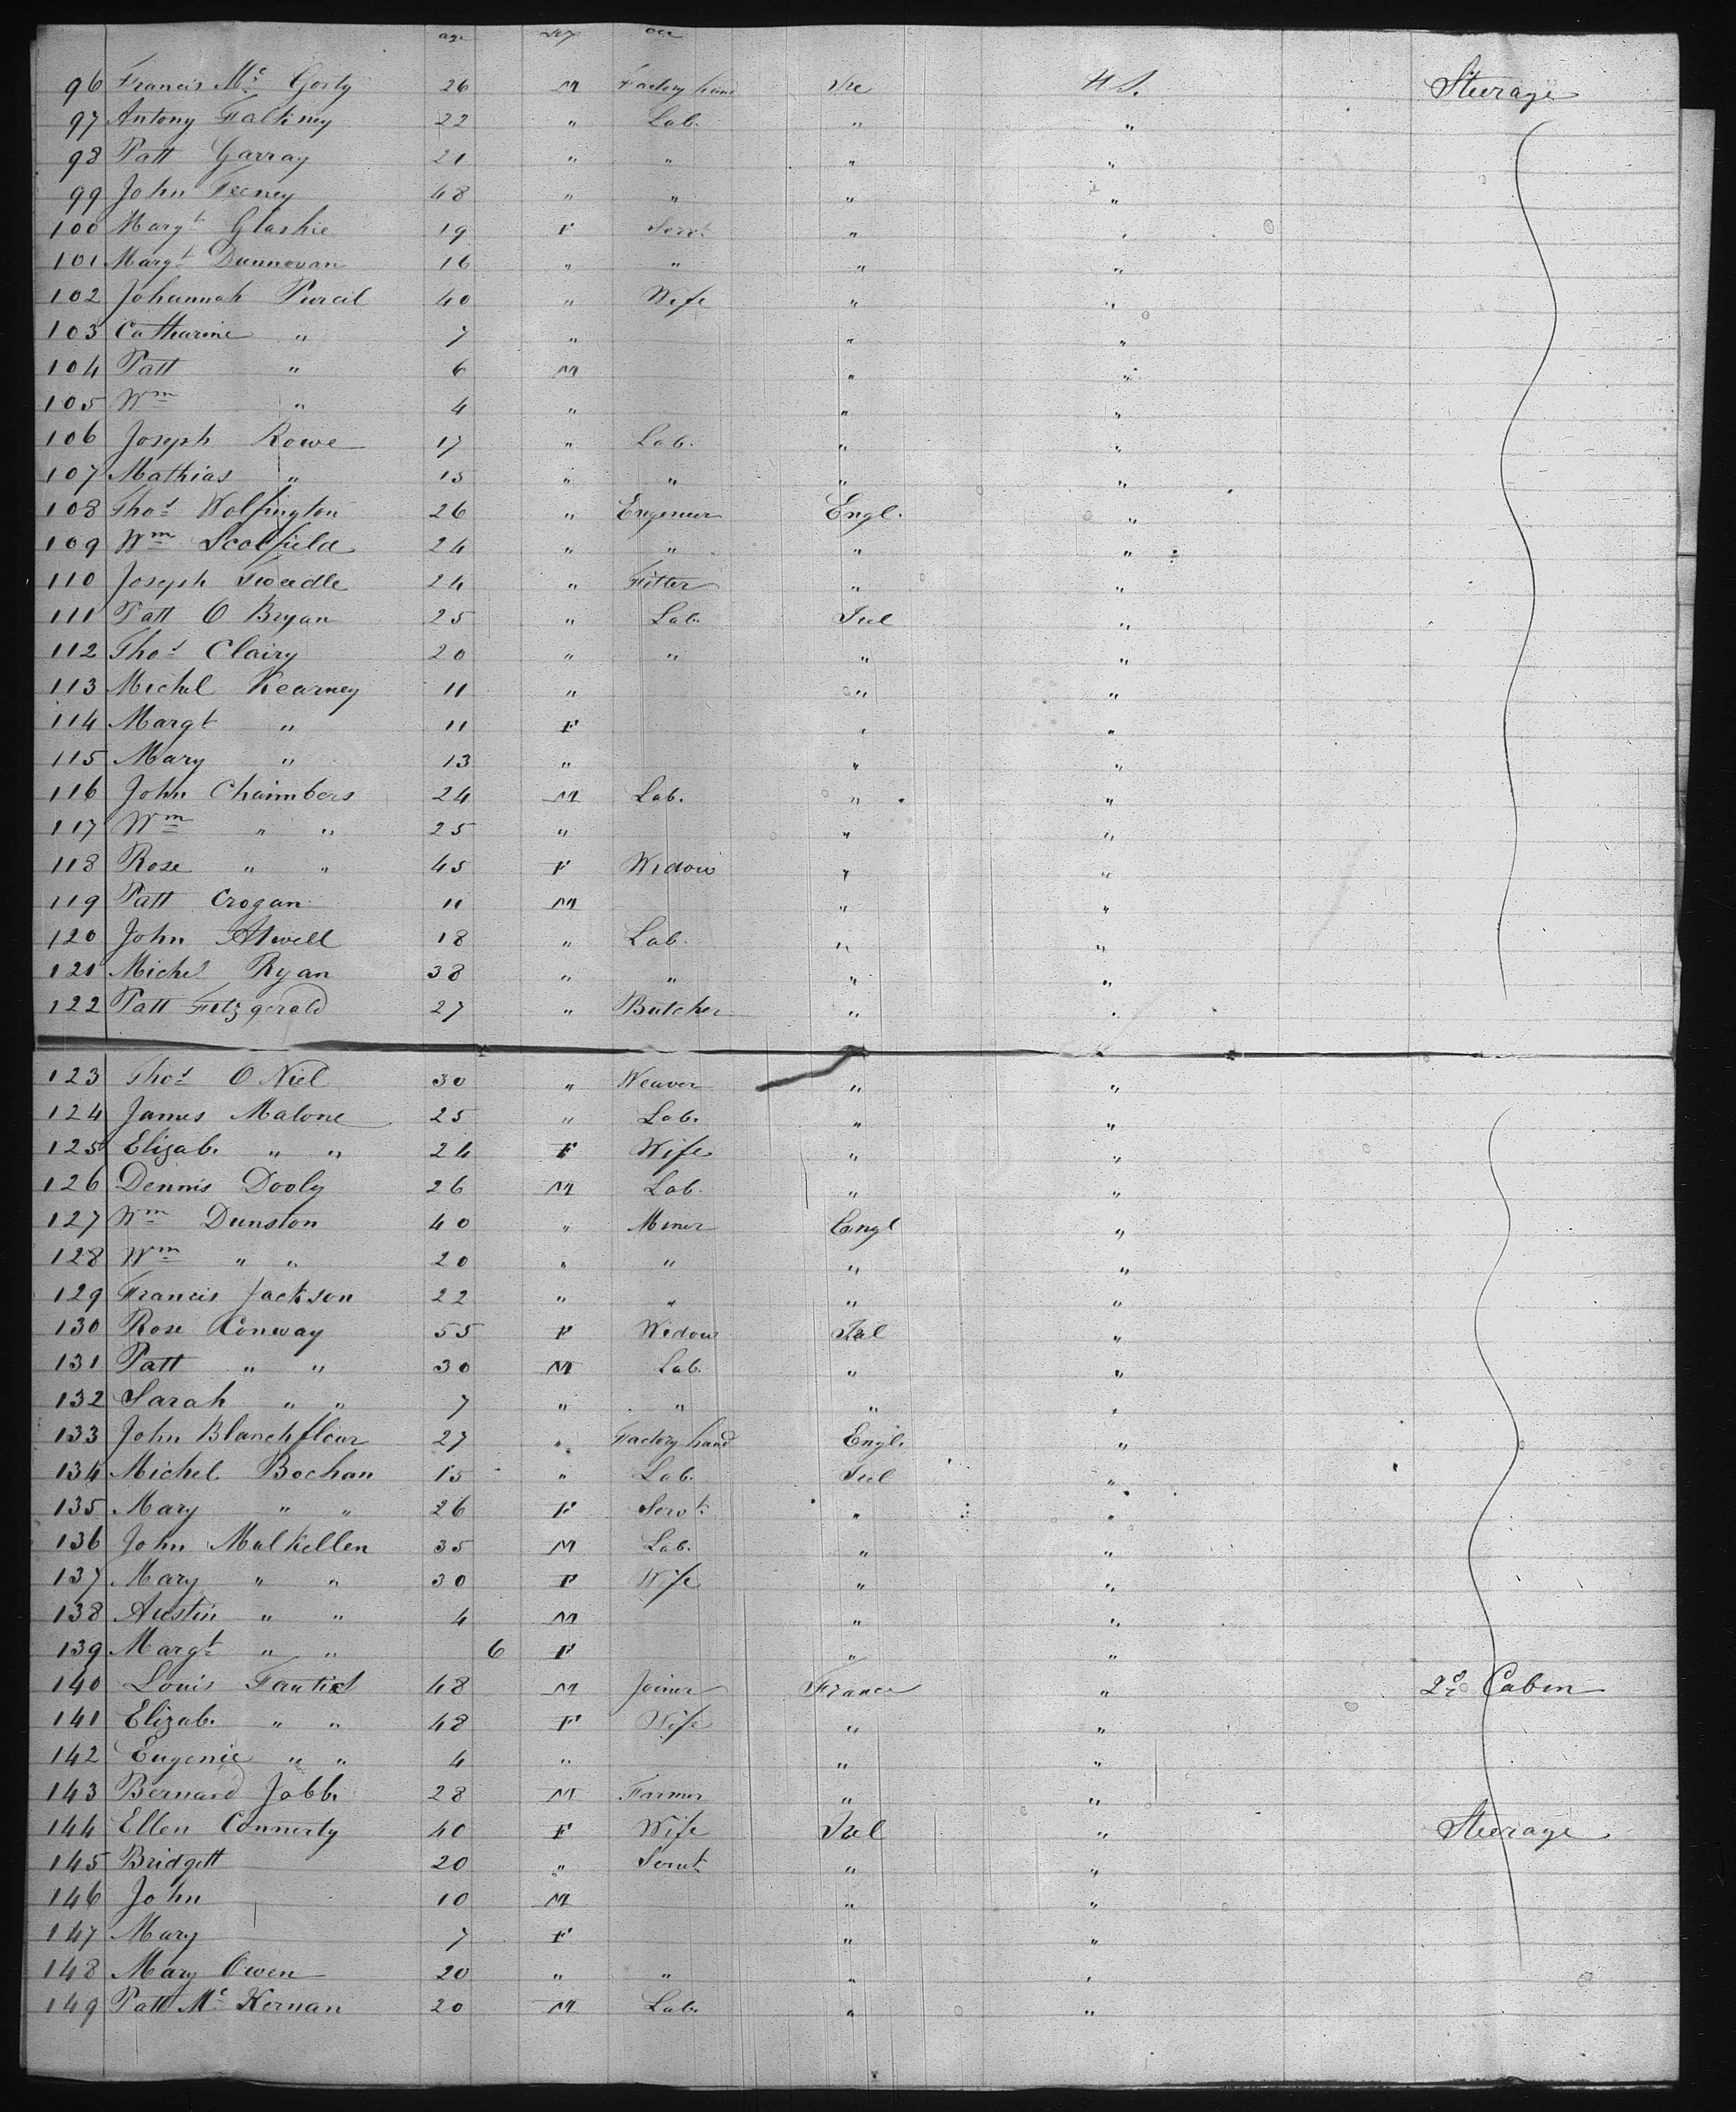 age sex occ
96 Francis Mc Gorty 26 M Factory hand Ire U S. Steerage
97 Antony Falkiney 22 " Lab. " "
98 Patt Garray 21 " " " "
99 John Feeney 48 " " " "
100 Margt Glashie 19 F Servt " "
101 Margt Dunnovan 16 " " " "
102 Johannah Purcil 40 " Wife " "
103 Catharine " 7 " " "
104 Patt " 6 M " "
105 Wm " 4 " " "
106 Joseph Rowe 17 " Lab. " "
107 Mathias " 15 " " " "
108 Thos Wolfington 26 " Engeneer Engl. "
109 Wm Scolfield 24 " " " "
110 Joseph Tweedle 24 " Fitter " "
111 Patt O Bryan 25 " Lab. Irel "
112 Thos Clairy 20 " " " "
113 Michel Kearney 11 " " "
114 Margt " 11 F " "
115 Mary " 13 " " "
116 John Chaimbers 24 M Lab. " "
117 Wm " " 25 " " "
118 Rose " " 45 F Widow " "
119 Patt Crogan 11 M " "
120 John Atwell 18 " Lab. " "
121 Michel Ryan 38 " " " "
122 Patt Fitzgerald 27 " Butcher " "
123 Thos O Niel 30 " Weaver " "
124 James Malone 25 " Lab. " "
125 Elizab. " " 24 F Wife " "
126 Dennis Dooly 26 M Lab. " "
127 Wm Dunston 40 " Miner Engl "
128 Wm " " 20 " " " "
129 Francis Jackson 22 " " " "
130 Rose Conway 55 F Widow Irel "
131 Patt " " 30 M Lab. " "
132 Sarah " " 7 " " " "
133 John Blanchflour 27 " Factory hand Engl. "
134 Michel Bochan 15 " Lab. Irel "
135 Mary " " 26 F Servt " "
136 John Mulkellen 35 M Lab. " "
137 Mary " " 30 F Wife " "
138 Austin " " 4 M " "
139 Margt " " 6 F " "
140 Louis 48 M Joiner France " 2d Cabin
141 Elizab. " " 48 F Wife " "
142 Eugenie " " 4 " " "
143 Bernard Jobb. 28 M Farmer " "
144 Ellen Connerty 40 F Wife Irel " Steerage
145 Bridgett 20 " Servt " "
146 John 10 M " "
147 Mary 7 F " "
148 Mary Owen 20 " " " "
149 Patt Mc Kernan 20 M Lab. " "